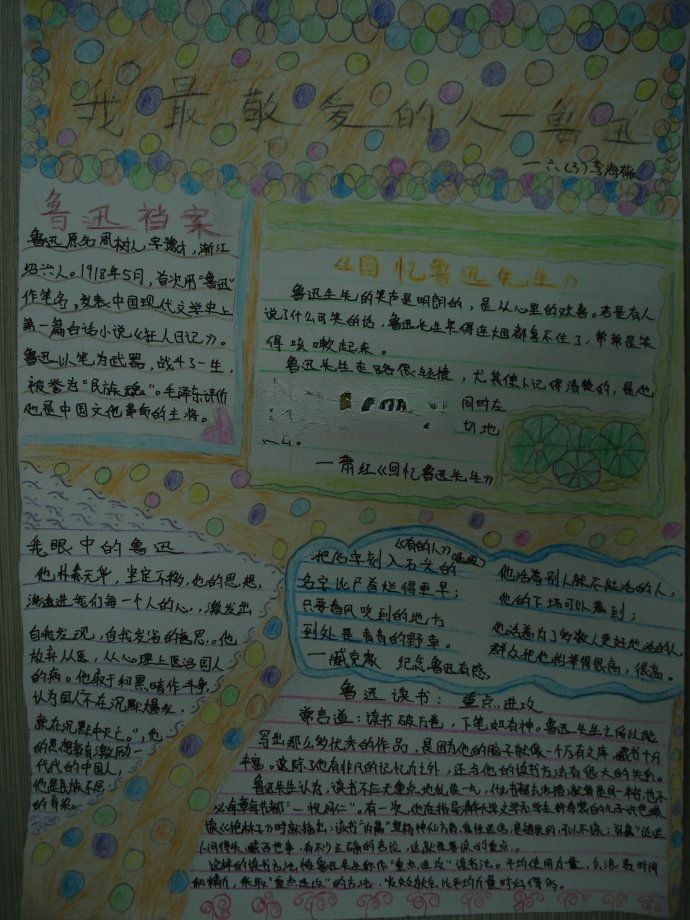 我最敬爱的人—鲁迅
—六(3)李海
鲁迅档案
鲁迅原名周树人,字豫才,浙江
绍兴人。1918年5月,首次用“鲁迅”
作笔名,发表中国现代文学史上
第一篇白话小说《狂人日记》。
鲁迅以笔为武器,战斗了一生,
被誉为“民族魂”。毛泽东评价
他是中国文化革命的主将。
《回忆鲁迅先生》
鲁迅先生的笑声是明朗的,是从心里的欢喜。若是有人
说了什么可笑的话,鲁迅先生笑得连烟都拿不住了,常常是笑
得咳嗽起来。
鲁迅先生走路很轻捷,尤其使人记得清楚的,是他
同时左
切地
—萧红《回忆鲁迅先生》
我眼中的鲁迅
他朴素无华,坚定不移,他的思想,
渗透进我们每一个人的人,激发出
自我发现,自我发省的意思。他
放弃从医,从心理上医治国人
的病。他敢于和黑暗作斗争,
认为国人“不在沉默爆发,
就在沉默中灭亡。”,他
的思想教育激励一
代代的中国人,
他是民族不屈
的脊梁。
《有的人》
把名字刻入石头的
名字比尸首烂得更早;
只要春风吹到的地方
到处是青青的野草。
—臧克家 纪念鲁迅有感
他活着别人就不能活的人,
他的下场可以看到;
他活着为了多数人更好地活的人,
群众把他抬举得很高,很高。
鲁迅读书:重点进攻
常言道:读书破万卷,下笔如有神。鲁迅先生之所以能
写出那么多优秀的作品,是因为他的脑子就像一个万有文库,藏书十分
丰富。这除了他有非凡的记忆力之外,还与他的读书方法有很大的关系。
鲁迅先生认为,读书不应无重点地乱读一气,
必章章每节都“一视同仁”。有一次,他在指导清华大学文学系学生许世瑛
读《抱朴子》时就指出:读书“内篇”宣扬神仙方药,
人间得失,臧否世事,有不少正确的言论,这就是要读的重点。
这样的读书方法,被鲁迅先生称作“重点进攻”读书法。平均使用力量,会浪费时间
和精力,采取“重点进攻”的方法,